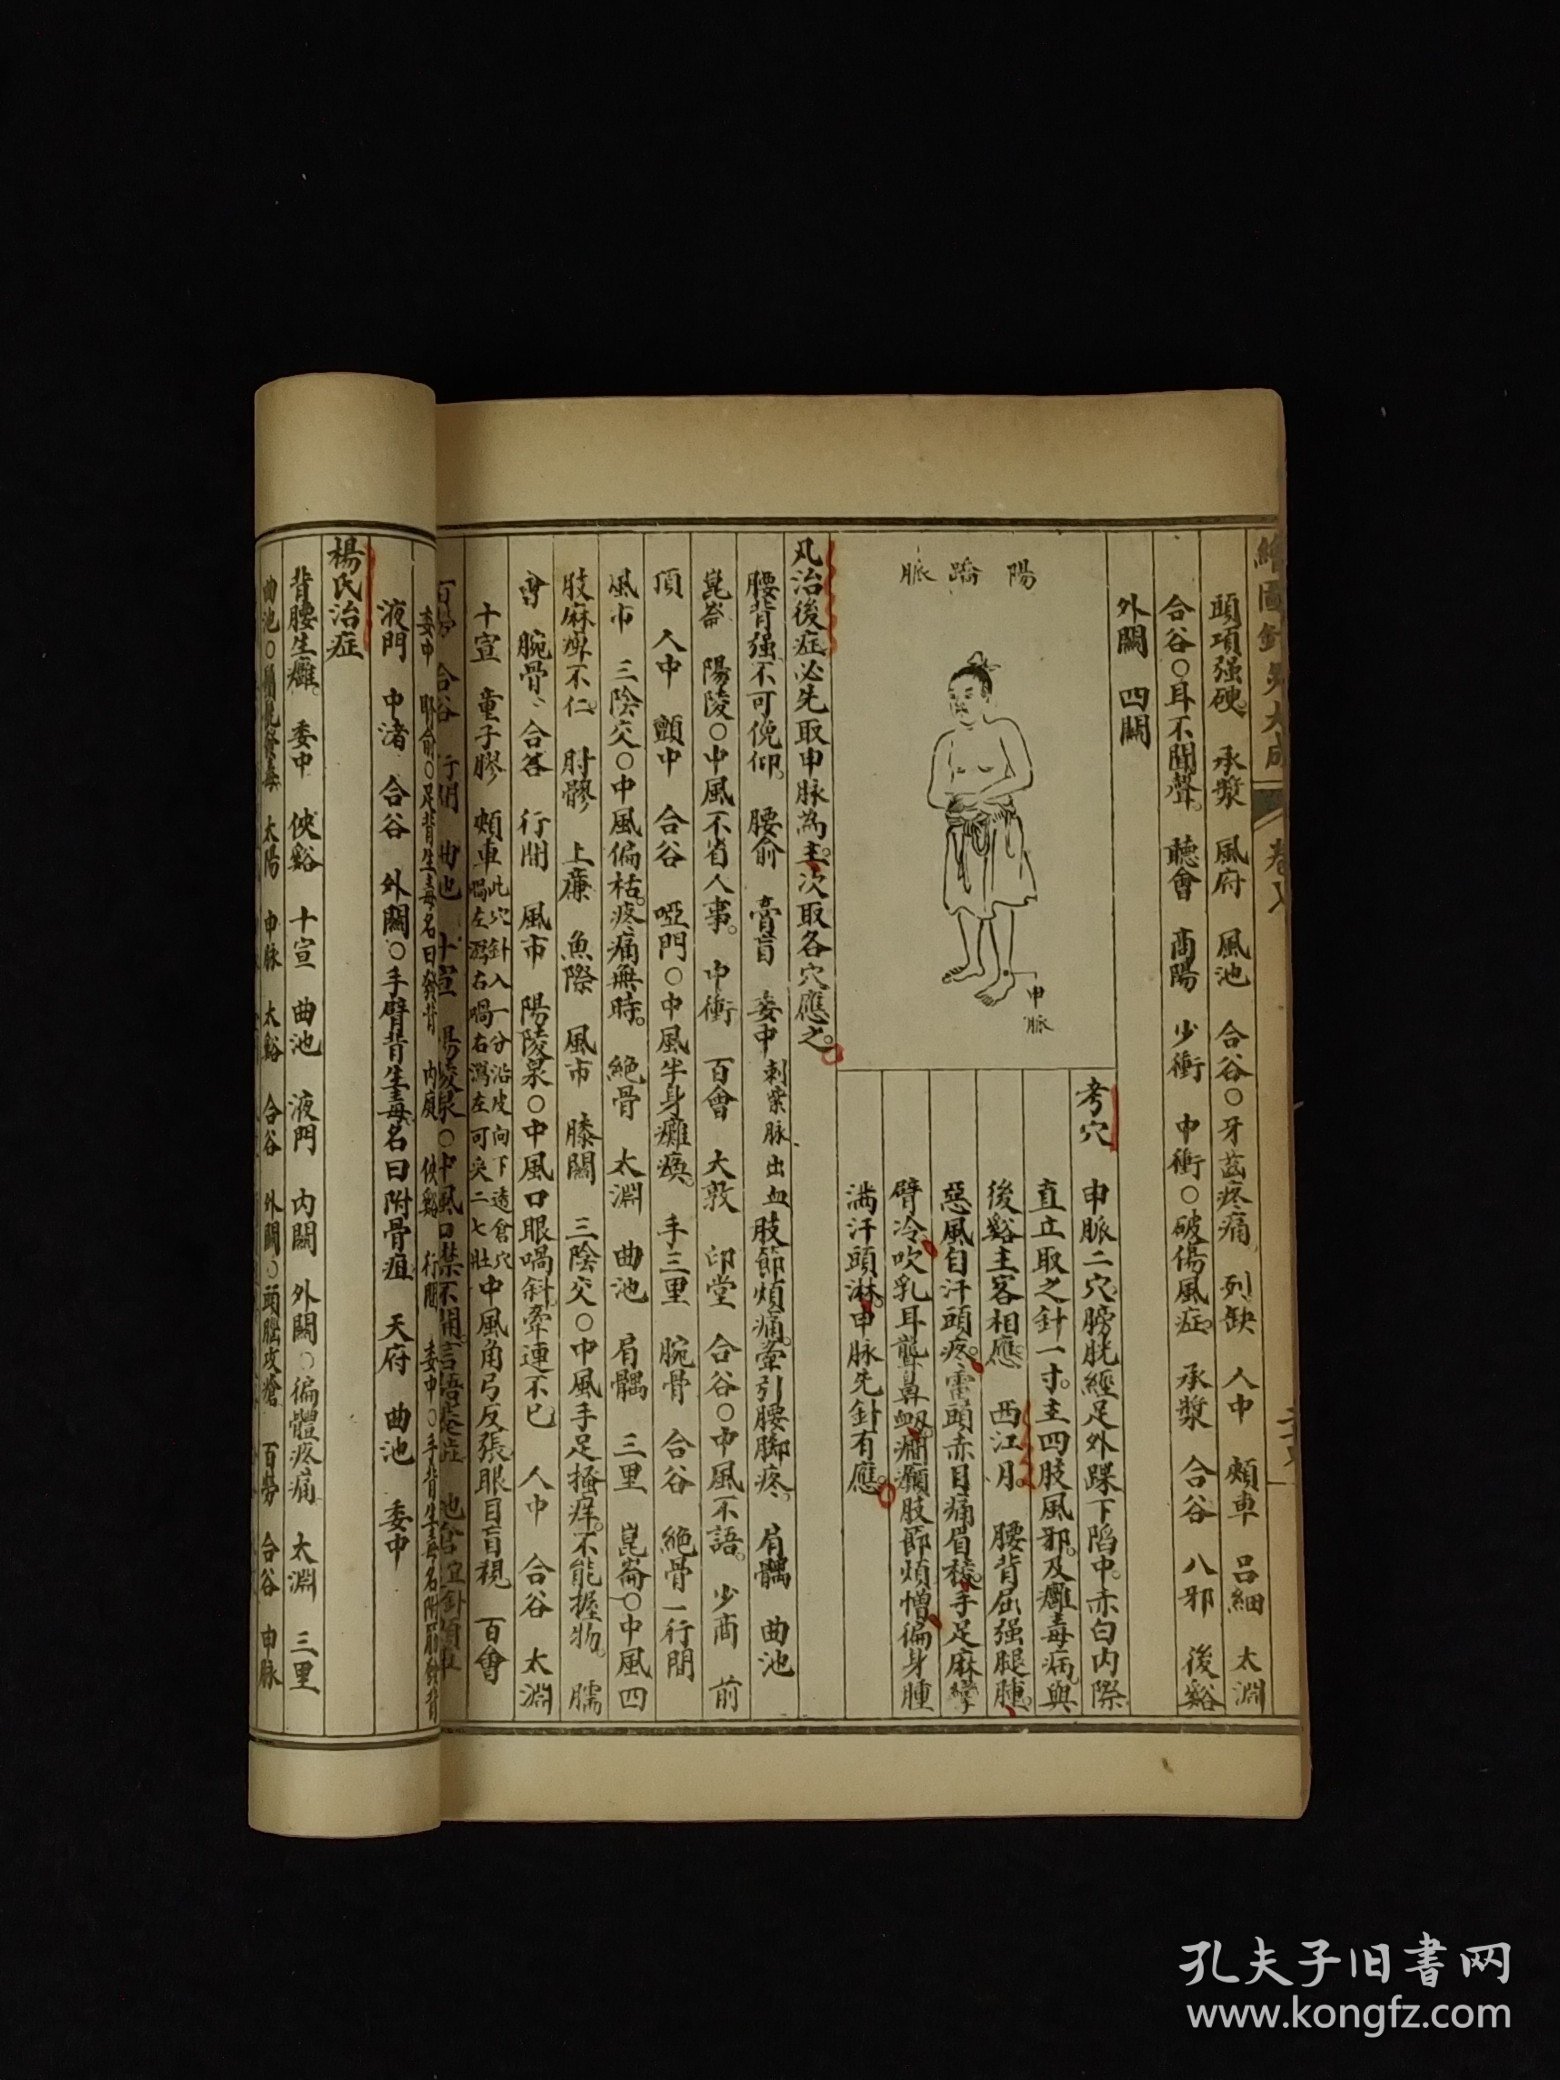 繪圖針灸大成
卷
頭項强硬 承漿 風府 風池 合谷○牙齒疼痛 列缺 人中 頰車 呂細 太淵
合谷○耳不聞聲 聽會 商陽 少衝 中衝○破傷風症 承漿 合谷 八邪 後谿
外關 四關
陽蹻脈
申脈
考穴 申脈二穴膀胱經足外踝下陷中赤白肉際
直立取之針一寸主四肢風邪及癰毒病與
後谿主客相應 西江月 腰背屈强腿腫
惡風自汗頭疼雷頭赤目痛眉稜手足麻攣
臂冷吹乳耳聾鼻衂癇癲肢節煩憎偏身腫
滿汗頭淋申脈先針有應
凡治後症必先取申脈為主次取各穴應之
腰背强不可俛仰 腰俞 膏肓 委中 刺紫脈出血 肢節煩痛牽引腰脚疼 肩髃 曲池
崑崙 陽陵○中風不省人事 中衝 百會 大敦 印堂 合谷○中風不語 少商 前
頂 人中 顫中 合谷 啞門○中風半身癱瘓 手三里 腕骨 合谷 絶骨 行間
風市 三陰交○中風偏枯疼痛無時 絶骨 太淵 曲池 肩髃 三里 崑崙○中風四
肢麻痹不仁 肘髎 上廉 魚際 風市 膝關 三陰交○中風手足搔痒不能握物 臑
會 腕骨 合谷 行間 風市 陽陵泉○中風口眼喎斜牽連不已 人中 合谷 太淵
十宣 童子髎 頰車 此穴針入一分沿皮向下透倉穴
喎左瀉右喎右瀉左可灸二七壯 中風角弓反張眼目盲視 百會
百勞 合谷 行間 曲池 十宣 陽陵泉○中風口禁不開言語蹇澁 地倉宜針透
委中 俞○足背生毒名曰發背 內庭 俠谿 行間 委中○手背生毒名附筋發背
液門 中渚 合谷 外關○手臂背生毒名曰附骨疽 天府 曲池 委中
楊氏治症
背腰生癰 委中 俠谿 十宣 曲池 液門 內關 外關○徧體疼痛 太淵 三里
曲池○ 太陽 申脈 太谿 合谷 外關○頭腦攻瘡 百勞 合谷 申脈
孔夫子旧书网
www.kongfz.com